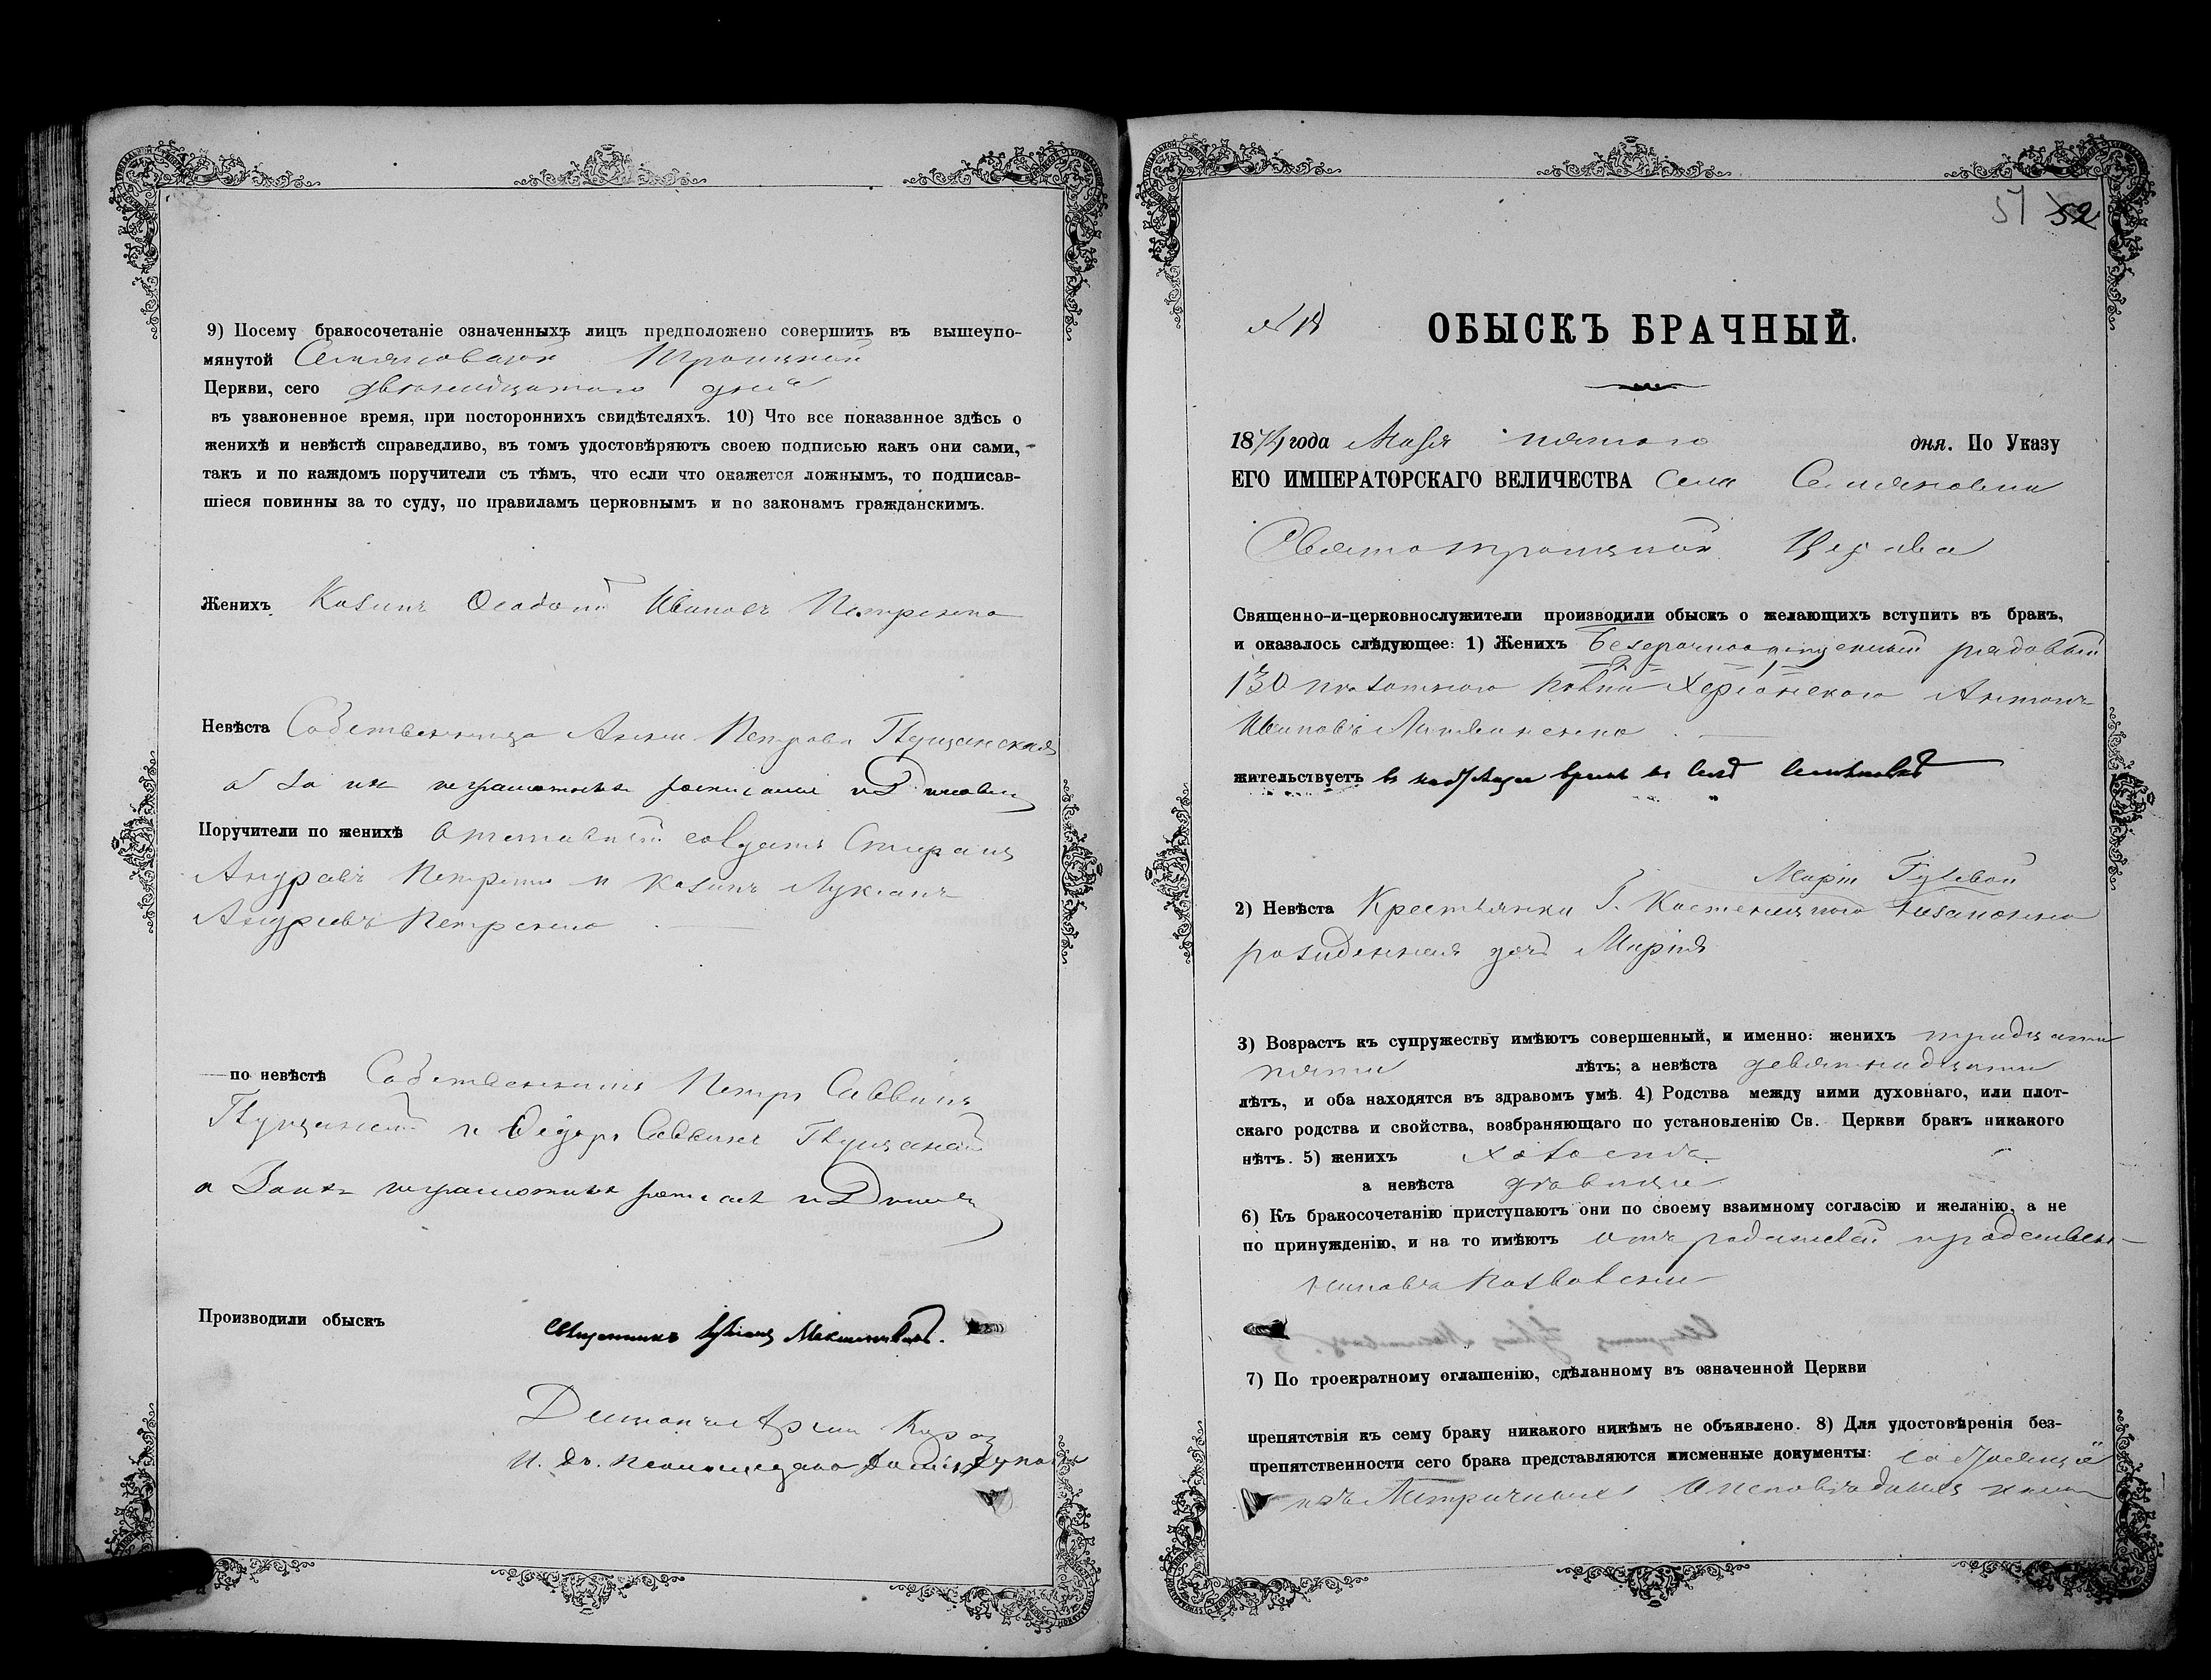 9) Посему бракосочетаніе означенныхъ лицъ предположено совершить въ вышеупо-
мянутой Семяновской Троицкой
Церкви, сего двенадцатого дня
въ узаконенное время, при постороннихъ свидѣтеляхъ. 10) Что все показанное здѣсь о
женихѣ и невѣстѣ справедливо, въ томъ удостовѣряютъ своею подписью какъ они сами,
такъ и по каждомъ поручители съ тѣмъ, что если что окажется ложнымъ, то подписав-
шіеся повинны за то суду, по правиламъ церковнымъ и по законамъ гражданскимъ.
Женихъ Казакъ Ѳеодотъ Ивановъ Петренко
Невѣста Собственница Анна Петрова Пущанская
а За их неграмотных росписался
Поручители по женихѣ Отставный солдатъ
Андреевъ Петренко и Казакъ Лукіанъ
Андреевъ Петренко
по невѣстѣ Собственникъ Петръ Саввинъ
Пущанский и Федоръ Саввинъ Пущанский
а За их неграмотных
Производили обыскъ
Священникъ Максимовичъ.
И. д. псаломщика
51 52
№ 18
ОБЫСКЪ БРАЧНЫЙ.
1874 года Мая пятого дня. По Указу
ЕГО ИМПЕРАТОРСКАГО ВЕЛИЧЕСТВА Села Семяновки
Святотроицкой Церкви
Священно-и-церковнослужители производили обыскъ о желающихъ вступить въ бракъ,
и оказалось слѣдующее: 1) Женихъ Безсрочноотпущенный рядовый
130 пехотного полка Херсонского Антонъ
Ивановъ Литвиненко
жительствуетъ в настоящее время в селѣ Семяновкѣ
Маріи Гулевой
2) Невѣста Крестьянки Г. незаконно
рожденная дочь Марія
3) Возрастъ къ супружеству имѣютъ совершенный, и именно: женихъ тридцати
пяти лѣтъ; а невѣста девятнадцати
лѣтъ, и оба находятся въ здравомъ умѣ. 4) Родства между ними духовнаго, или плот-
скаго родства и свойства, возбраняющаго по установленію Св. Церкви бракъ никакого
нѣтъ. 5) женихъ холостъ
а невѣста девица
6) Къ бракосочетанію приступаютъ они по своему взаимному согласію и желанію, а не
по принужденію, и на то имѣютъ отъ родителей и родствен-
никовъ позволеніе
7) По троекратному оглашенію, сдѣланному въ означенной Церкви
препятствія къ сему браку никакого никѣмъ не объявлено. 8) Для удостовѣренія без-
препятственности сего брака представляются письменные документы:
изъ Метрическихъ и исповѣдныхъ книгъ